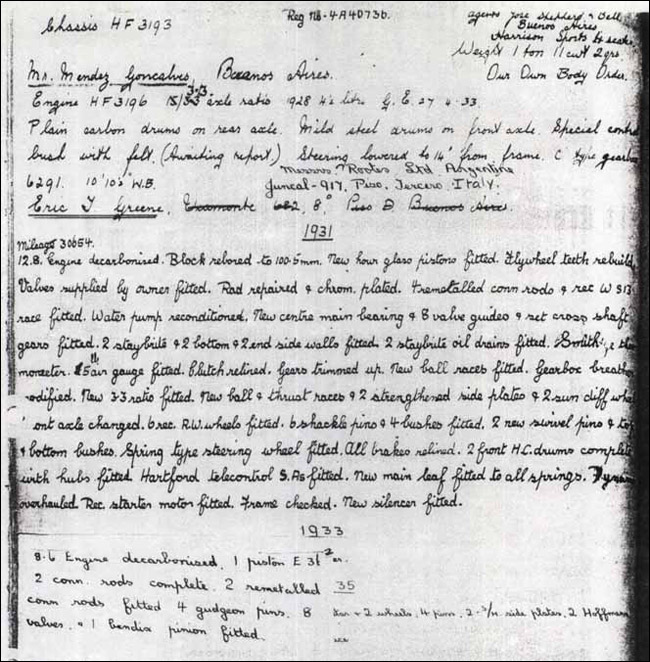 Chassis HF 3193
Reg No - 4A40736.
agents Jose Shepherd & Bell
Buenos Aires
Harrison Sports 4 seater
Weight 1 ton 11 cwt 2 qrs.
Our Own Body Order.
Mr. Mendez Goncalves, Buenos Aires.
Engine HF 3196 15/53 3.3 axle ratio 1928 4½ litre G. E. 27 4.33.
Plain carbon drums on rear axle. Mild steel drums on front axle. Special
bush with felt. (Awaiting report.) Steering lowered to 14" from frame. C type gearbox
6291. 10'10" W.B.
Messrs. Rootes Ltd Argentina
Juncal-917, Piso, Tercero, Italy.
Eric T Greene, 682, 8° Piso D Buenos Aires.
1931
Mileage 30654.
12.8. Engine decarbonised. Block rebored to 100.5mm. New hour glass pistons fitted. Flywheel teeth rebuild
Valves supplied by owner fitted. Rad repaired & chrom. plated. 4 remetalled conn rods & rec W 813
race fitted. Water pump reconditioned. New centre main bearing & 8 valve guides & set cross shaft
gears fitted. 2 staybrite & 2 bottom & 2 end side walls fitted. 2 staybrite oil drains fitted. Smith
mometer. 15 air gauge fitted. Clutch relined. Gears trimmed up. New ball races fitted. Gearbox breather
odified. New 3.3 ratio fitted. New ball & thrust races & 2 strengthened side plates & 2 sun diff whe
ont axle changed. 6 rec. R.W. wheels fitted. 6 shackle pins & 4 bushes fitted. 2 new swivel pins & top
& bottom bushes. Spring type steering wheel fitted. All brakes relined. 2 front H.C. drums complete
with hubs fitted Hartford telecontrol S.As fitted. New main leaf fitted to all springs. Dynamo
overhauled Rec. starter motor fitted. Frame checked. New silencer fitted.
1933
8.6 Engine decarbonised. 1 piston E 31
2 conn. rods complete. 2 remetalled
conn rods fitted 4 gudgeon pins. 8
valves, & 1 bendix pinion fitted.
35
Star & 2 wheels, 4 pins, 2 - 3/4 side plates, 2 Hoffmann